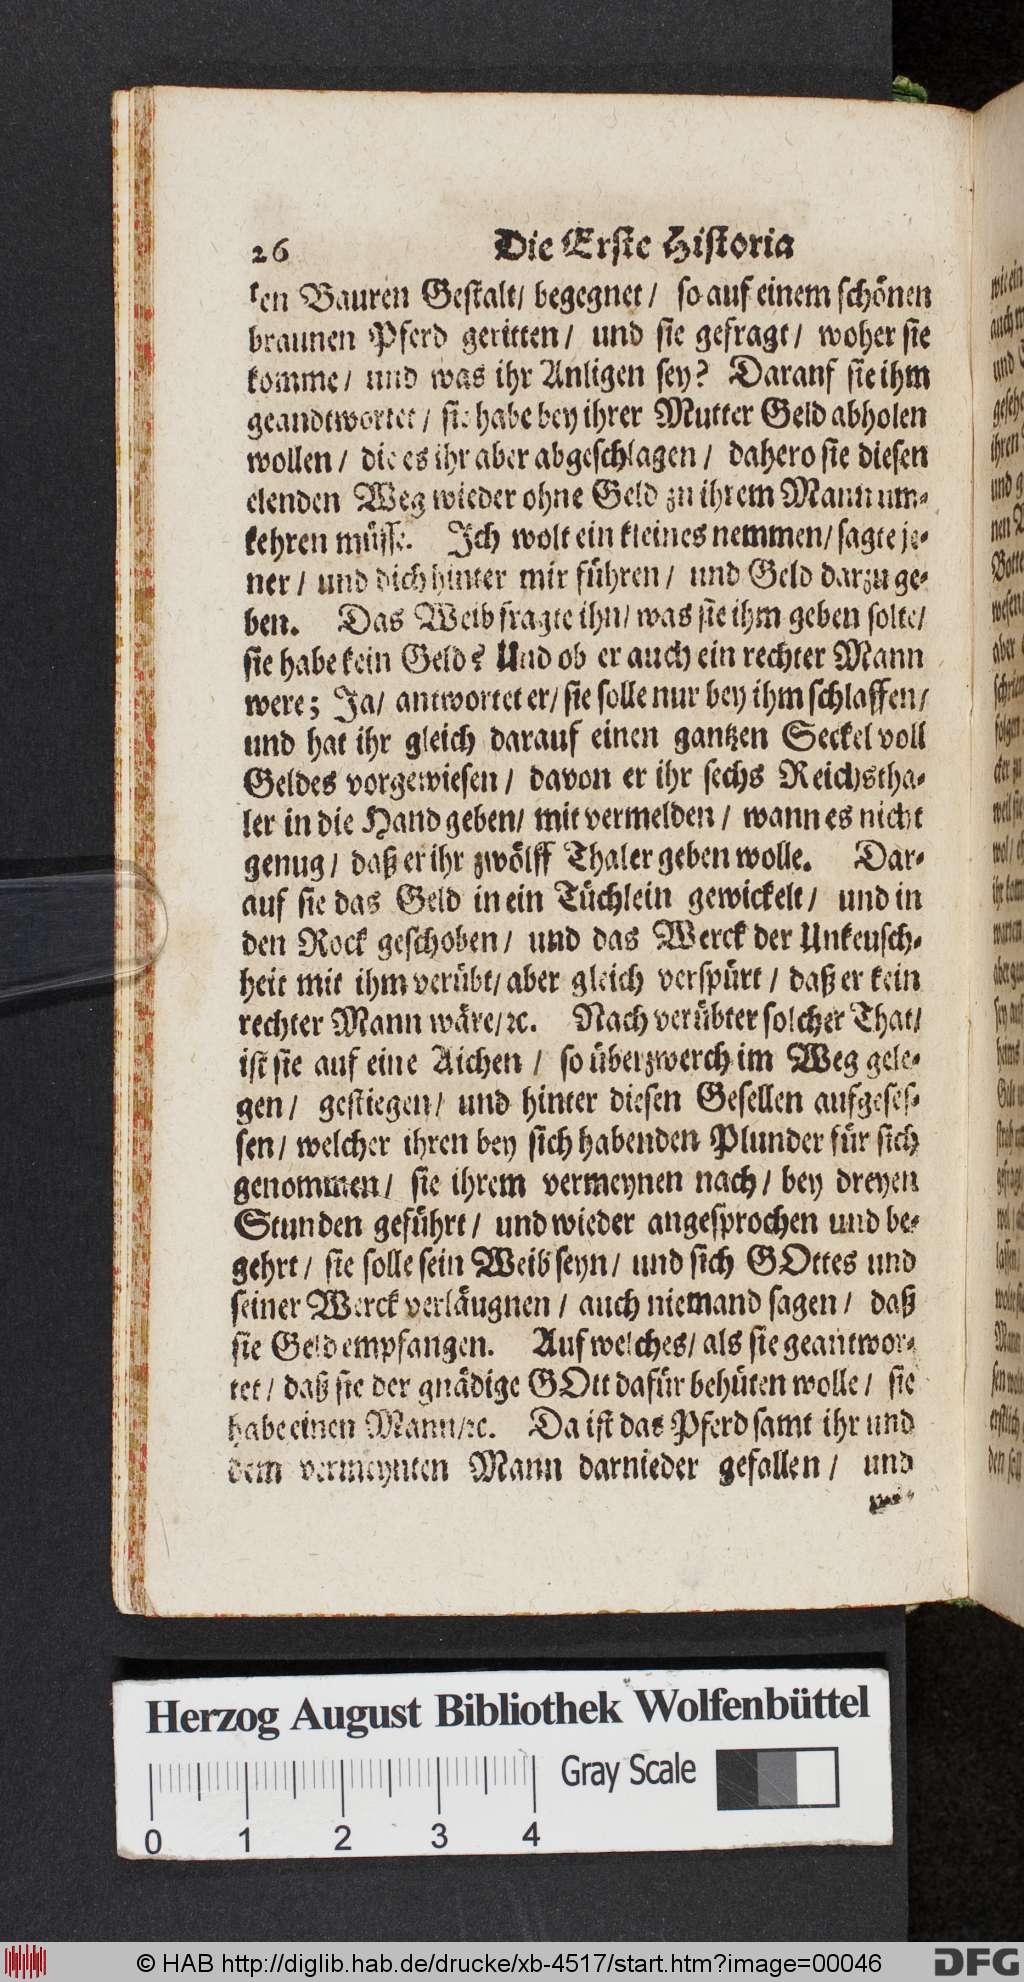 26 Die Erste Historia
ten Bauren Gestalt/ begegnet / so auf einem schönen
braunen Pferd geritten / und sie gefragt / woher sie
komme / und was ihr Anligen sey? Darauf sie ihm
geandtwortet / sie habe bey ihrer Mutter Geld abholen
wollen / die es ihr aber abgeschlagen / dahero sie diesen
elenden Weg wieder ohne Geld zu ihrem Mann um-
kehren müsse. Ich wolt ein kleines nemmen / sagte je-
ner / und dich hinter mir führen / und Geld darzu ge-
ben. Das Weib fragte ihn / was sie ihm geben solte /
sie habe kein Geld? Und ob er auch ein rechter Mann
were; Ja / antwortet er / sie solle nur bey ihm schlaffen /
und hat ihr gleich darauf einen gantzen Seckel voll
Geldes vorgewiesen / davon er ihr sechs Reichstha-
ler in die Hand geben / mit vermelden / wann es nicht
genug / daß er ihr zwölff Thaler geben wolle. Dar-
auf sie das Geld in ein Tüchlein gewickelt / und in
den Rock geschoben / und das Werck der Unkeusch-
heit mit ihm verübt / aber gleich verspürt / daß er kein
rechter Mann wäre / ꝛc. Nach verübter solcher That /
ist sie auf eine Aichen / so überzwerch im Weg gele-
gen / gestiegen / und hinter diesen Gesellen aufgeses-
sen / welcher ihren bey sich habenden Plunder für sich
genommen / sie ihrem vermeynen nach / bey dreyen
Stunden geführt / und wieder angesprochen und be-
gehrt / sie solle sein Weib seyn / und sich GOttes und
seiner Werck verläugnen / auch niemand sagen / daß
sie Geld empfangen. Auf welches / als sie geantwor-
tet / daß sie der gnädige GOtt dafür behüten wolle / sie
habe einen Mann / ꝛc. Da ist das Pferd samt ihr und
dem vermeynten Mann darnieder gefallen / und
Herzog August Bibliothek Wolfenbüttel
Gray Scale
0 1 2 3 4
© HAB http://diglib.hab.de/drucke/xb-4517/start.htm?image=00046
DFG